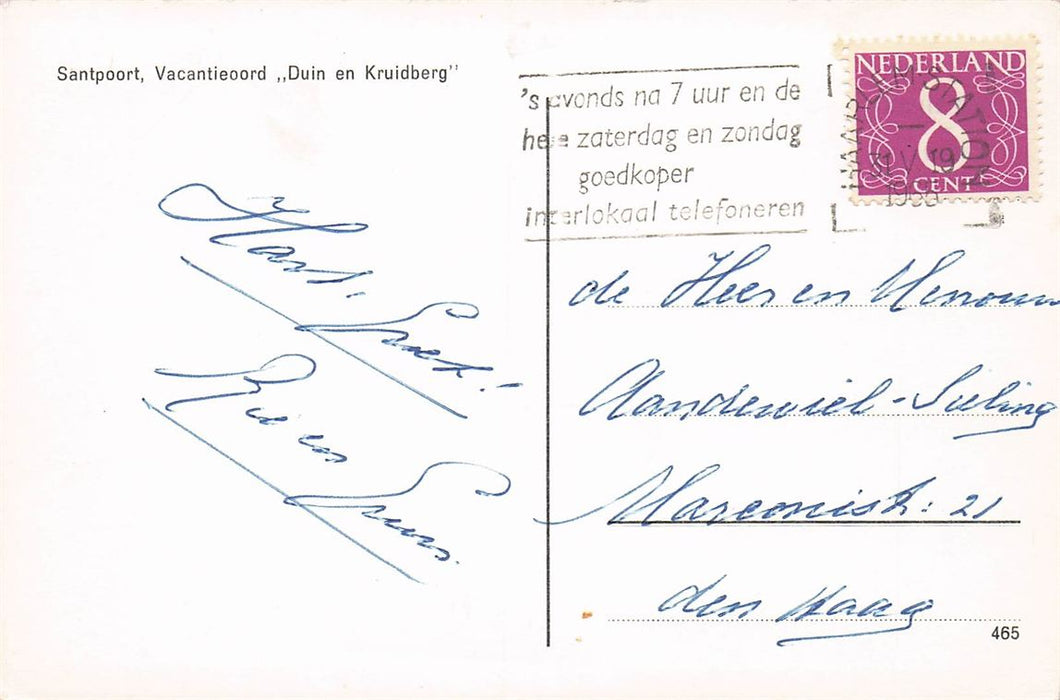 Santpoort, Vacantieoord „Duin en Kruidberg"
's avonds na 7 uur en de
hele zaterdag en zondag
goedkoper
interlokaal telefoneren
NEDERLAND
8
CENT
HAARLEM-STATION
31 V 19
Hart.
Groet!
Rie en
Truus.
de Heer en Mevrouw
Aandewiel-Sieling
Marconistr: 21
den Haag
465